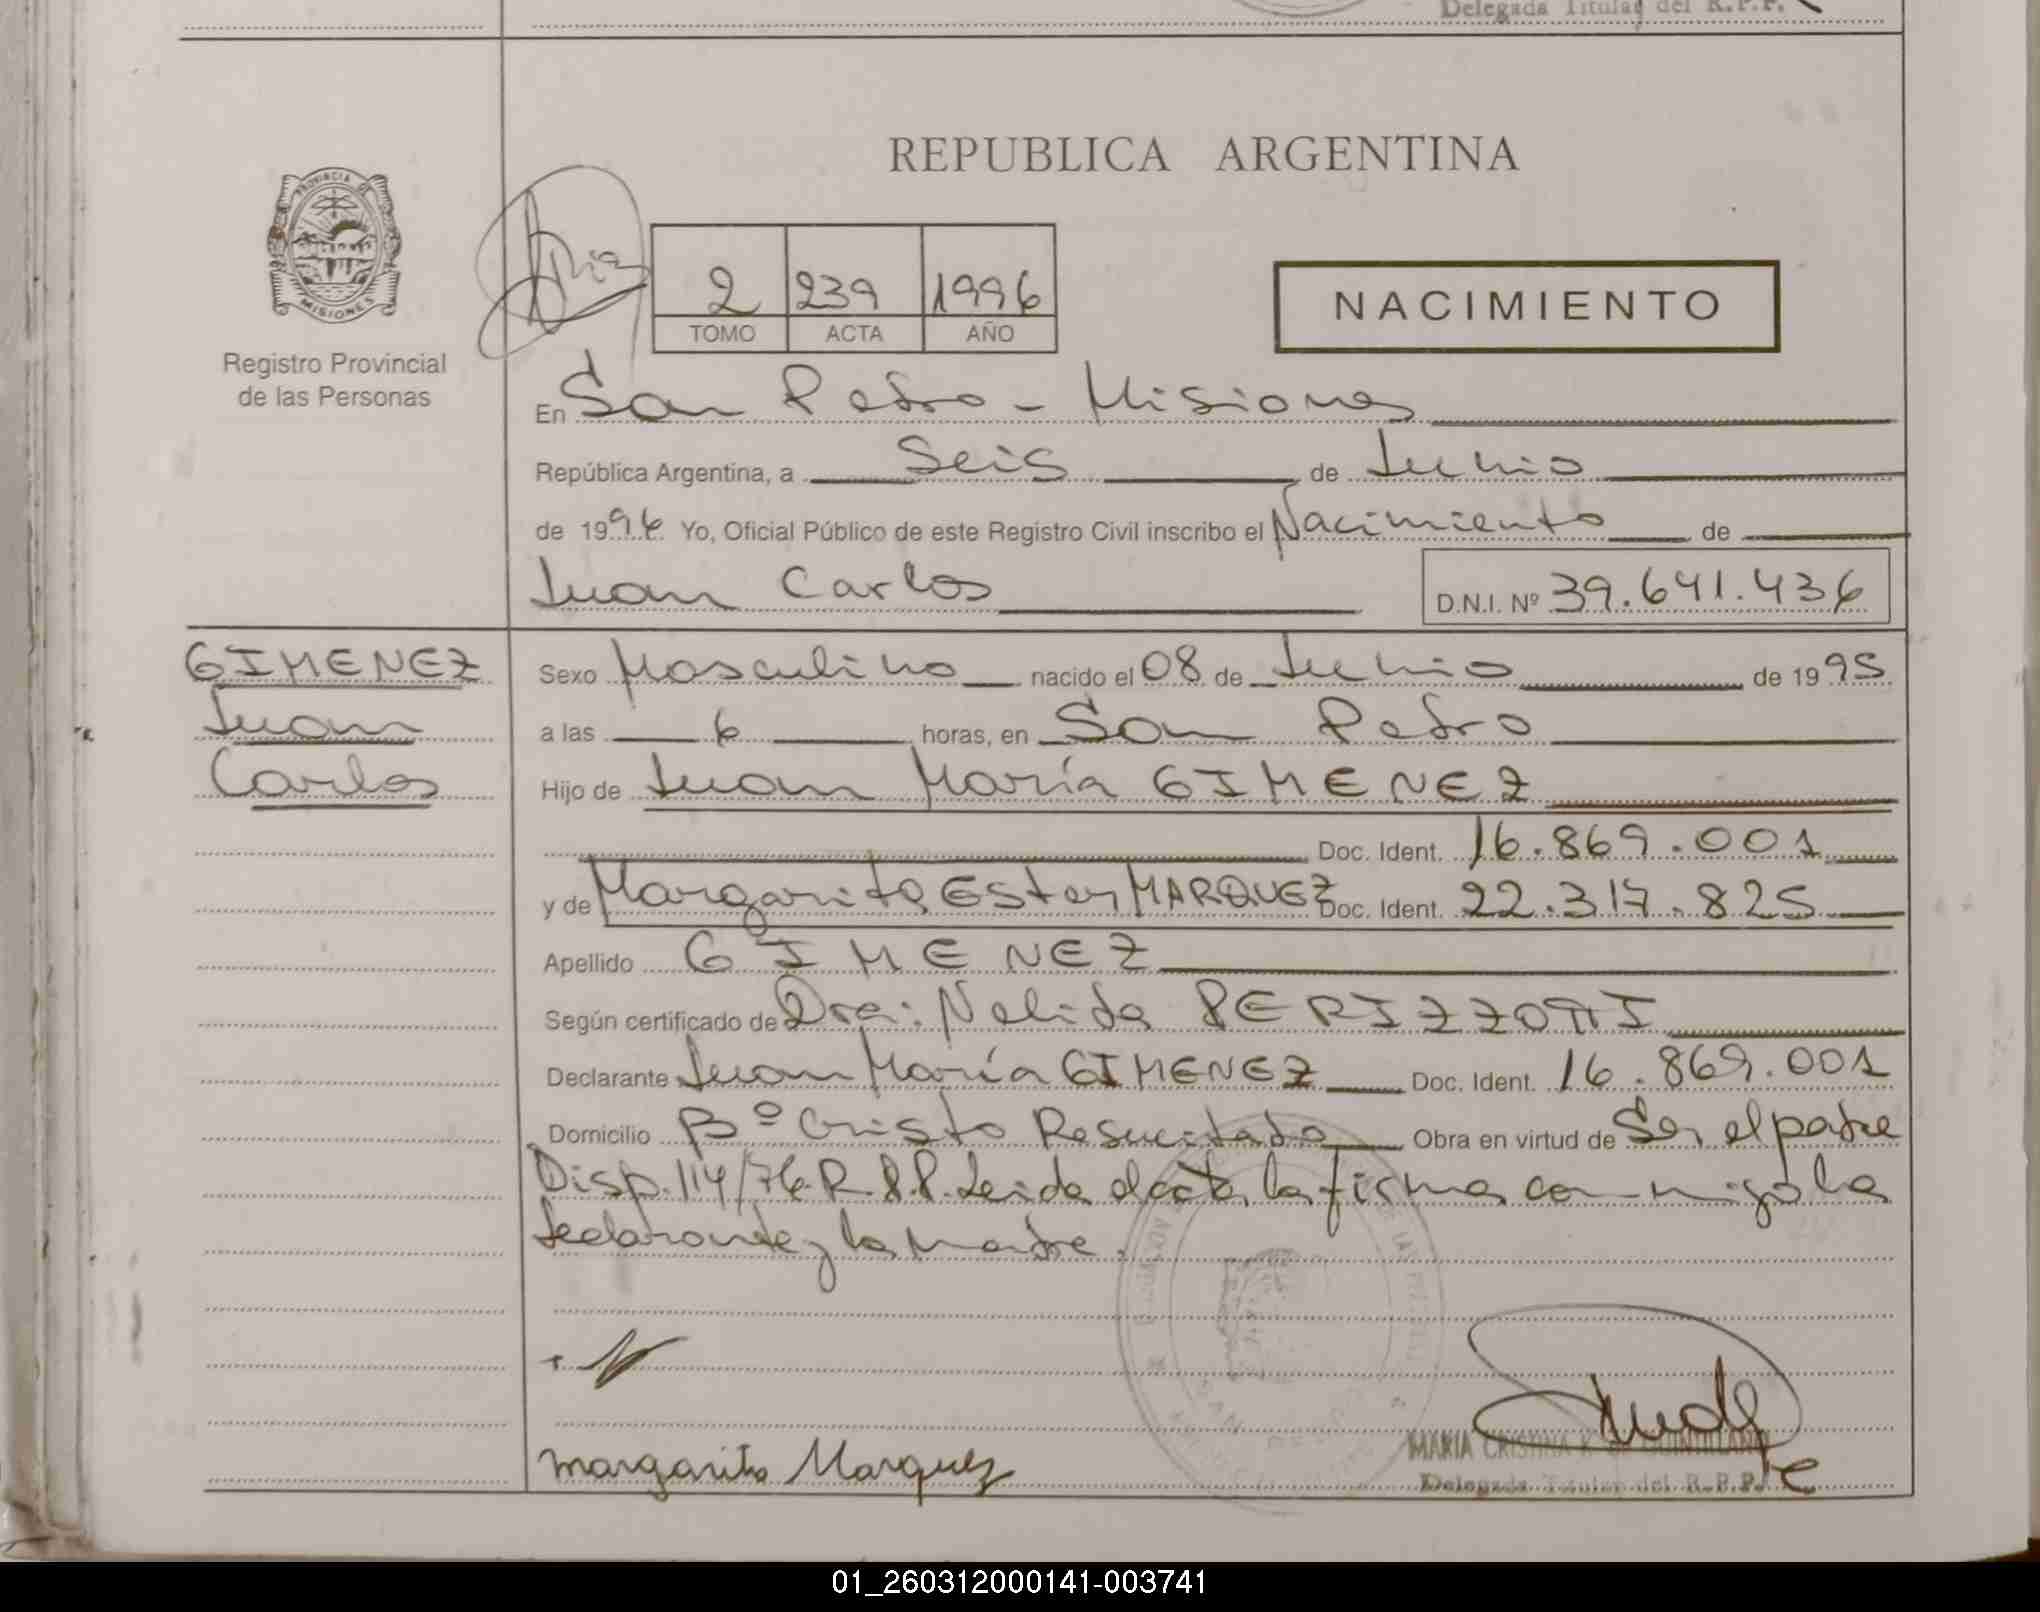 Delegada Titular del R.P.P.
REPUBLICA ARGENTINA
PROVINCIA DE
MISIONES
Registro Provincial
de las Personas
2 239 1996
TOMO ACTA AÑO
NACIMIENTO
En San Pedro - Misiones
República Argentina, a Seis de Junio
de 1996 Yo, Oficial Público de este Registro Civil inscribo el Nacimiento de
Juan Carlos D.N.I. Nº 39.641.436
GIMENEZ
Juan
Carlos
Sexo Masculino nacido el 08 de Junio de 1995
a las 6 horas, en San Pedro
Hijo de Juan María GIMENEZ
Doc. Ident. 16.869.001
y de Margarita Ester MARQUEZ Doc. Ident. 22.317.825
Apellido GIMENEZ
Según certificado de Dra: Nelida PERIZZOTTI
Declarante Juan María GIMENEZ Doc. Ident. 16.869.001
Domicilio Bº Cristo Resucitado Obra en virtud de Ser el padre
Disp. 114/76 R.P.P. Leida el acta, la firma conmigo la
declarante y la madre.
Margarita Marquez
MARIA CRISTINA K. DE QUINTILLANO
Delegada Titular del R.P.P.
01_260312000141-003741